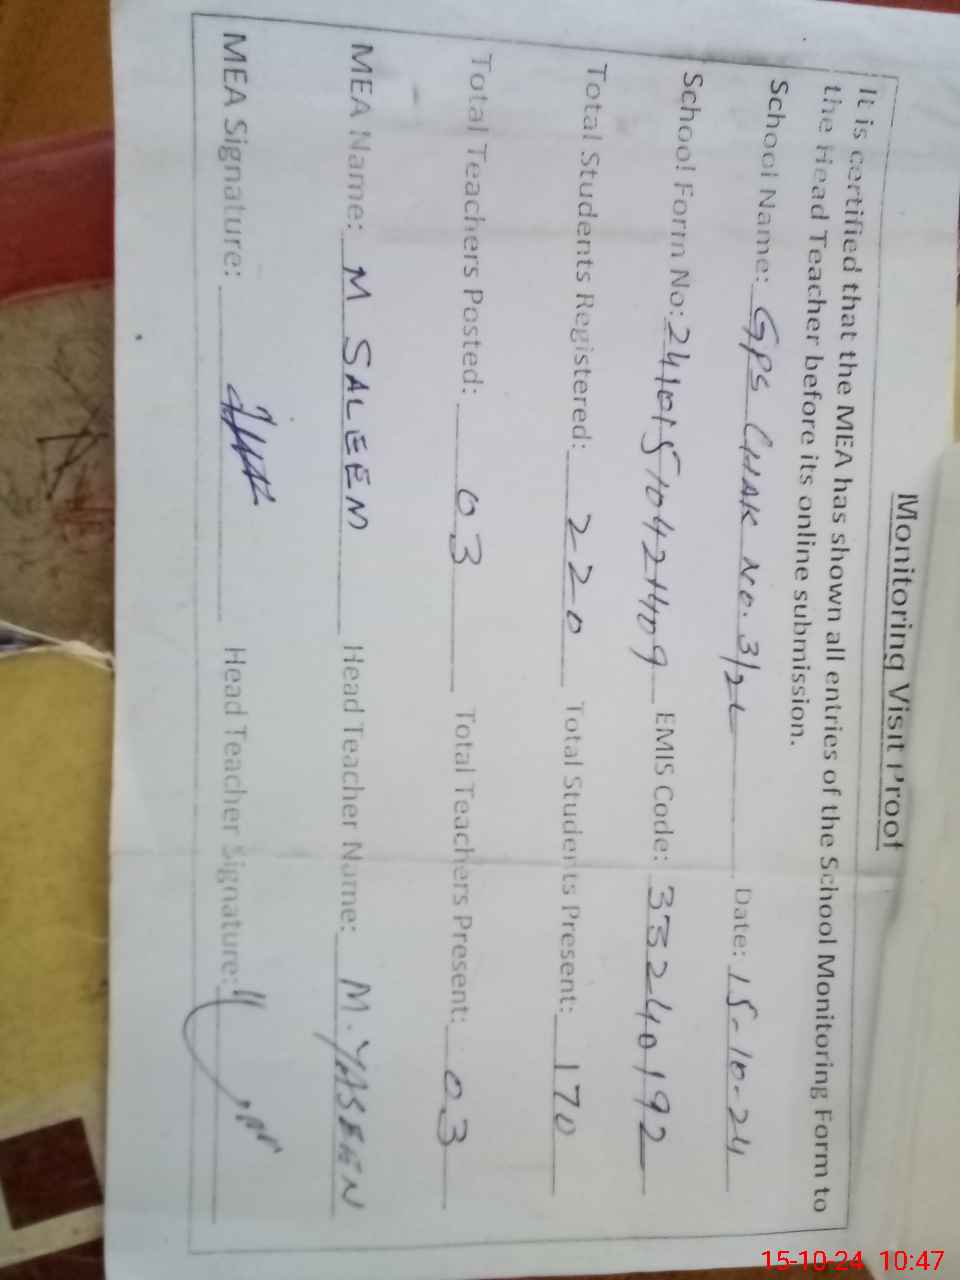 Monitoring Visit Proof
It is certified that the MEA has shown all entries of the School Monitoring Form to
the Head Teacher before its online submission.
School Name: GPS CHAK No. 3/2L Date: 15-10-24
School Form No: EMIS Code: 33240192
Total Students Registered: 220 Total Students Present: 170
Total Teachers Posted: 03 Total Teachers Present: 03
MEA Name: M SALEEM Head Teacher Name: M. YASEEN
MEA Signature: Head Teacher Signature:
15-10-24 10:47